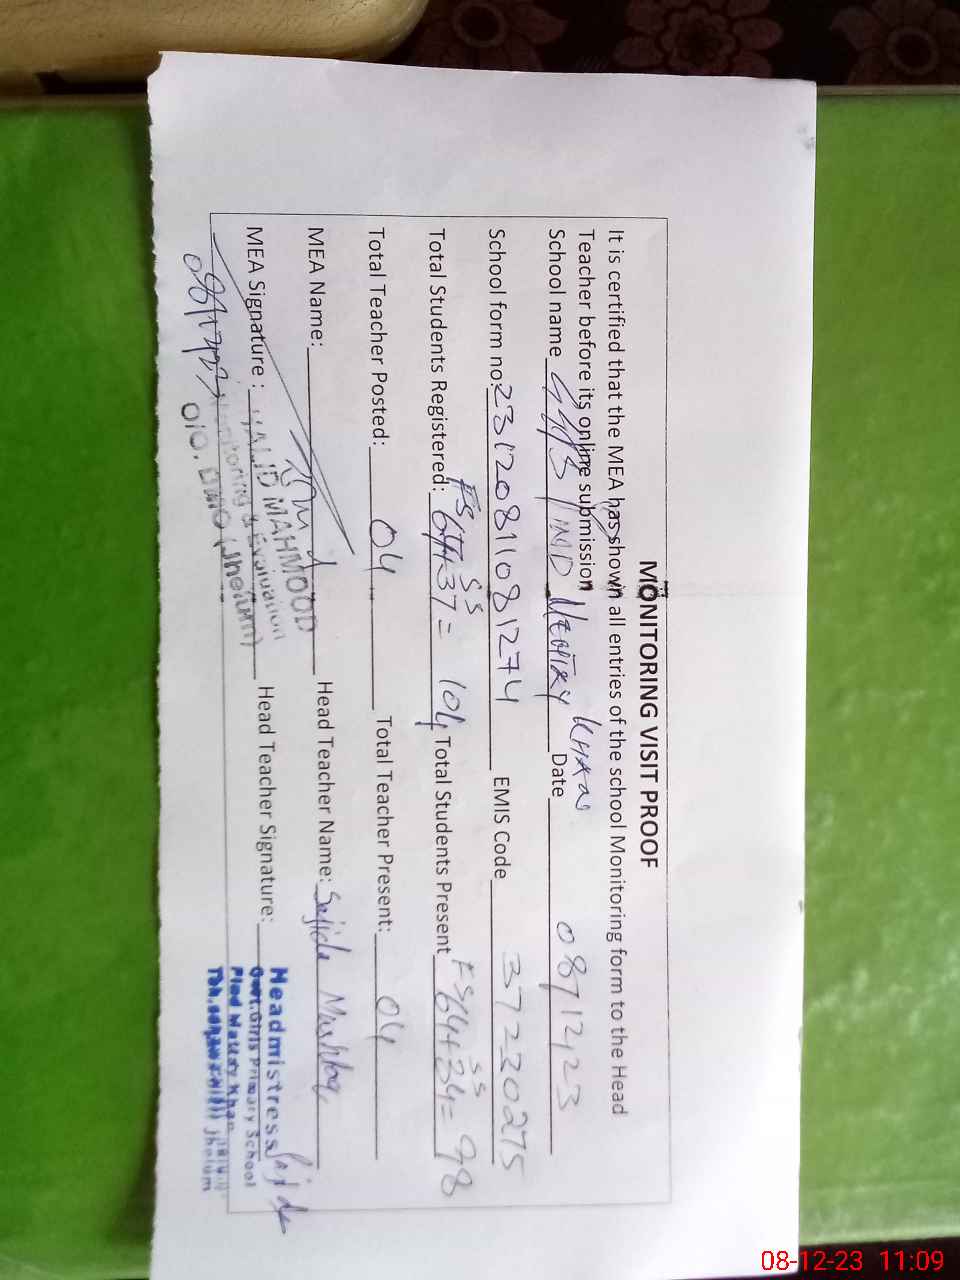 MONITORING VISIT PROOF
It is certified that the MEA has shown all entries of the school Monitoring form to the Head
Teacher before its online submission
School name GGPS PIND MATTAY KHAS Date 08/12/23
School form no: 23120811081274 EMIS Code 37220275
FS SS FS SS
Total Students Registered: 67+37= 104 Total Students Present 64+34= 98
Total Teacher Posted: 04 Total Teacher Present: 04
MEA Name: Head Teacher Name: Sajida Mushtaq
KHALID MAHMOOD
MEA Signature : Monitoring & Evaluation Head Teacher Signature: Sajida
O/O. DMO (Jhelum)
Headmistress
Govt. Girls Primary School
Pind Khas
Jhelum
08-12-23 11:09